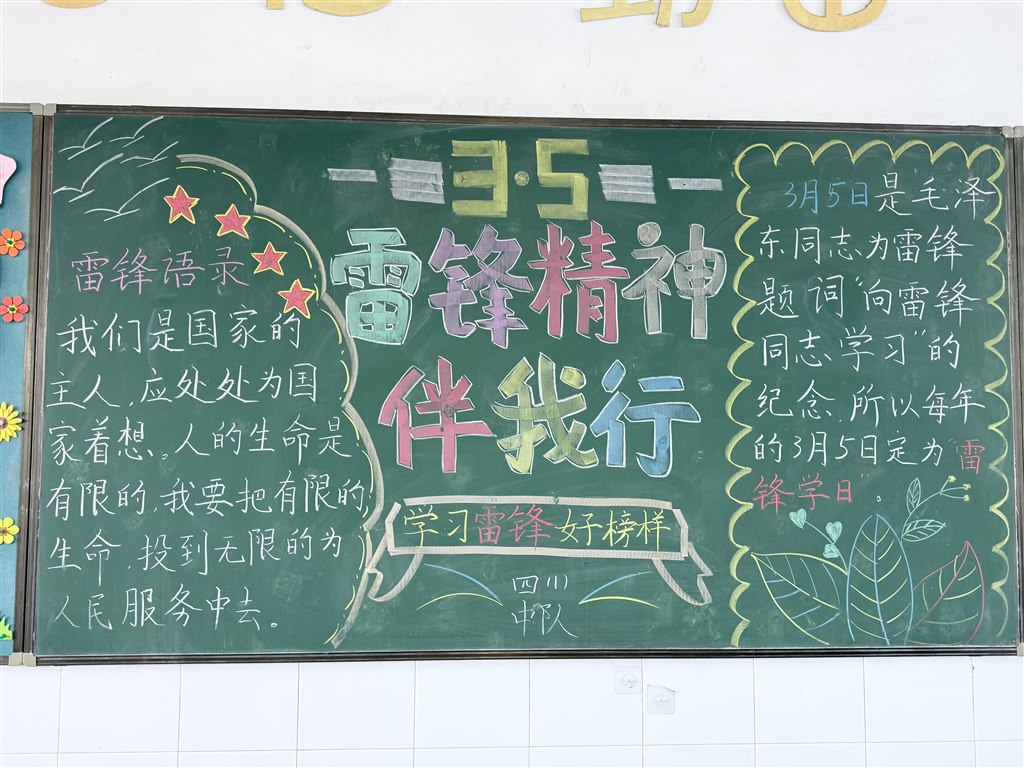 雷锋语录
我们是国家的
主人,应处处为国
家着想。人的生命是
有限的,我要把有限的
生命,投到无限的为
人民服务中去。
3·5
雷锋精神
伴我行
学习雷锋好榜样
四(1)
中队
3月5日是毛泽
东同志为雷锋
题词“向雷锋
同志学习”的
纪念,所以每年
的3月5日定为“雷
锋学日”。